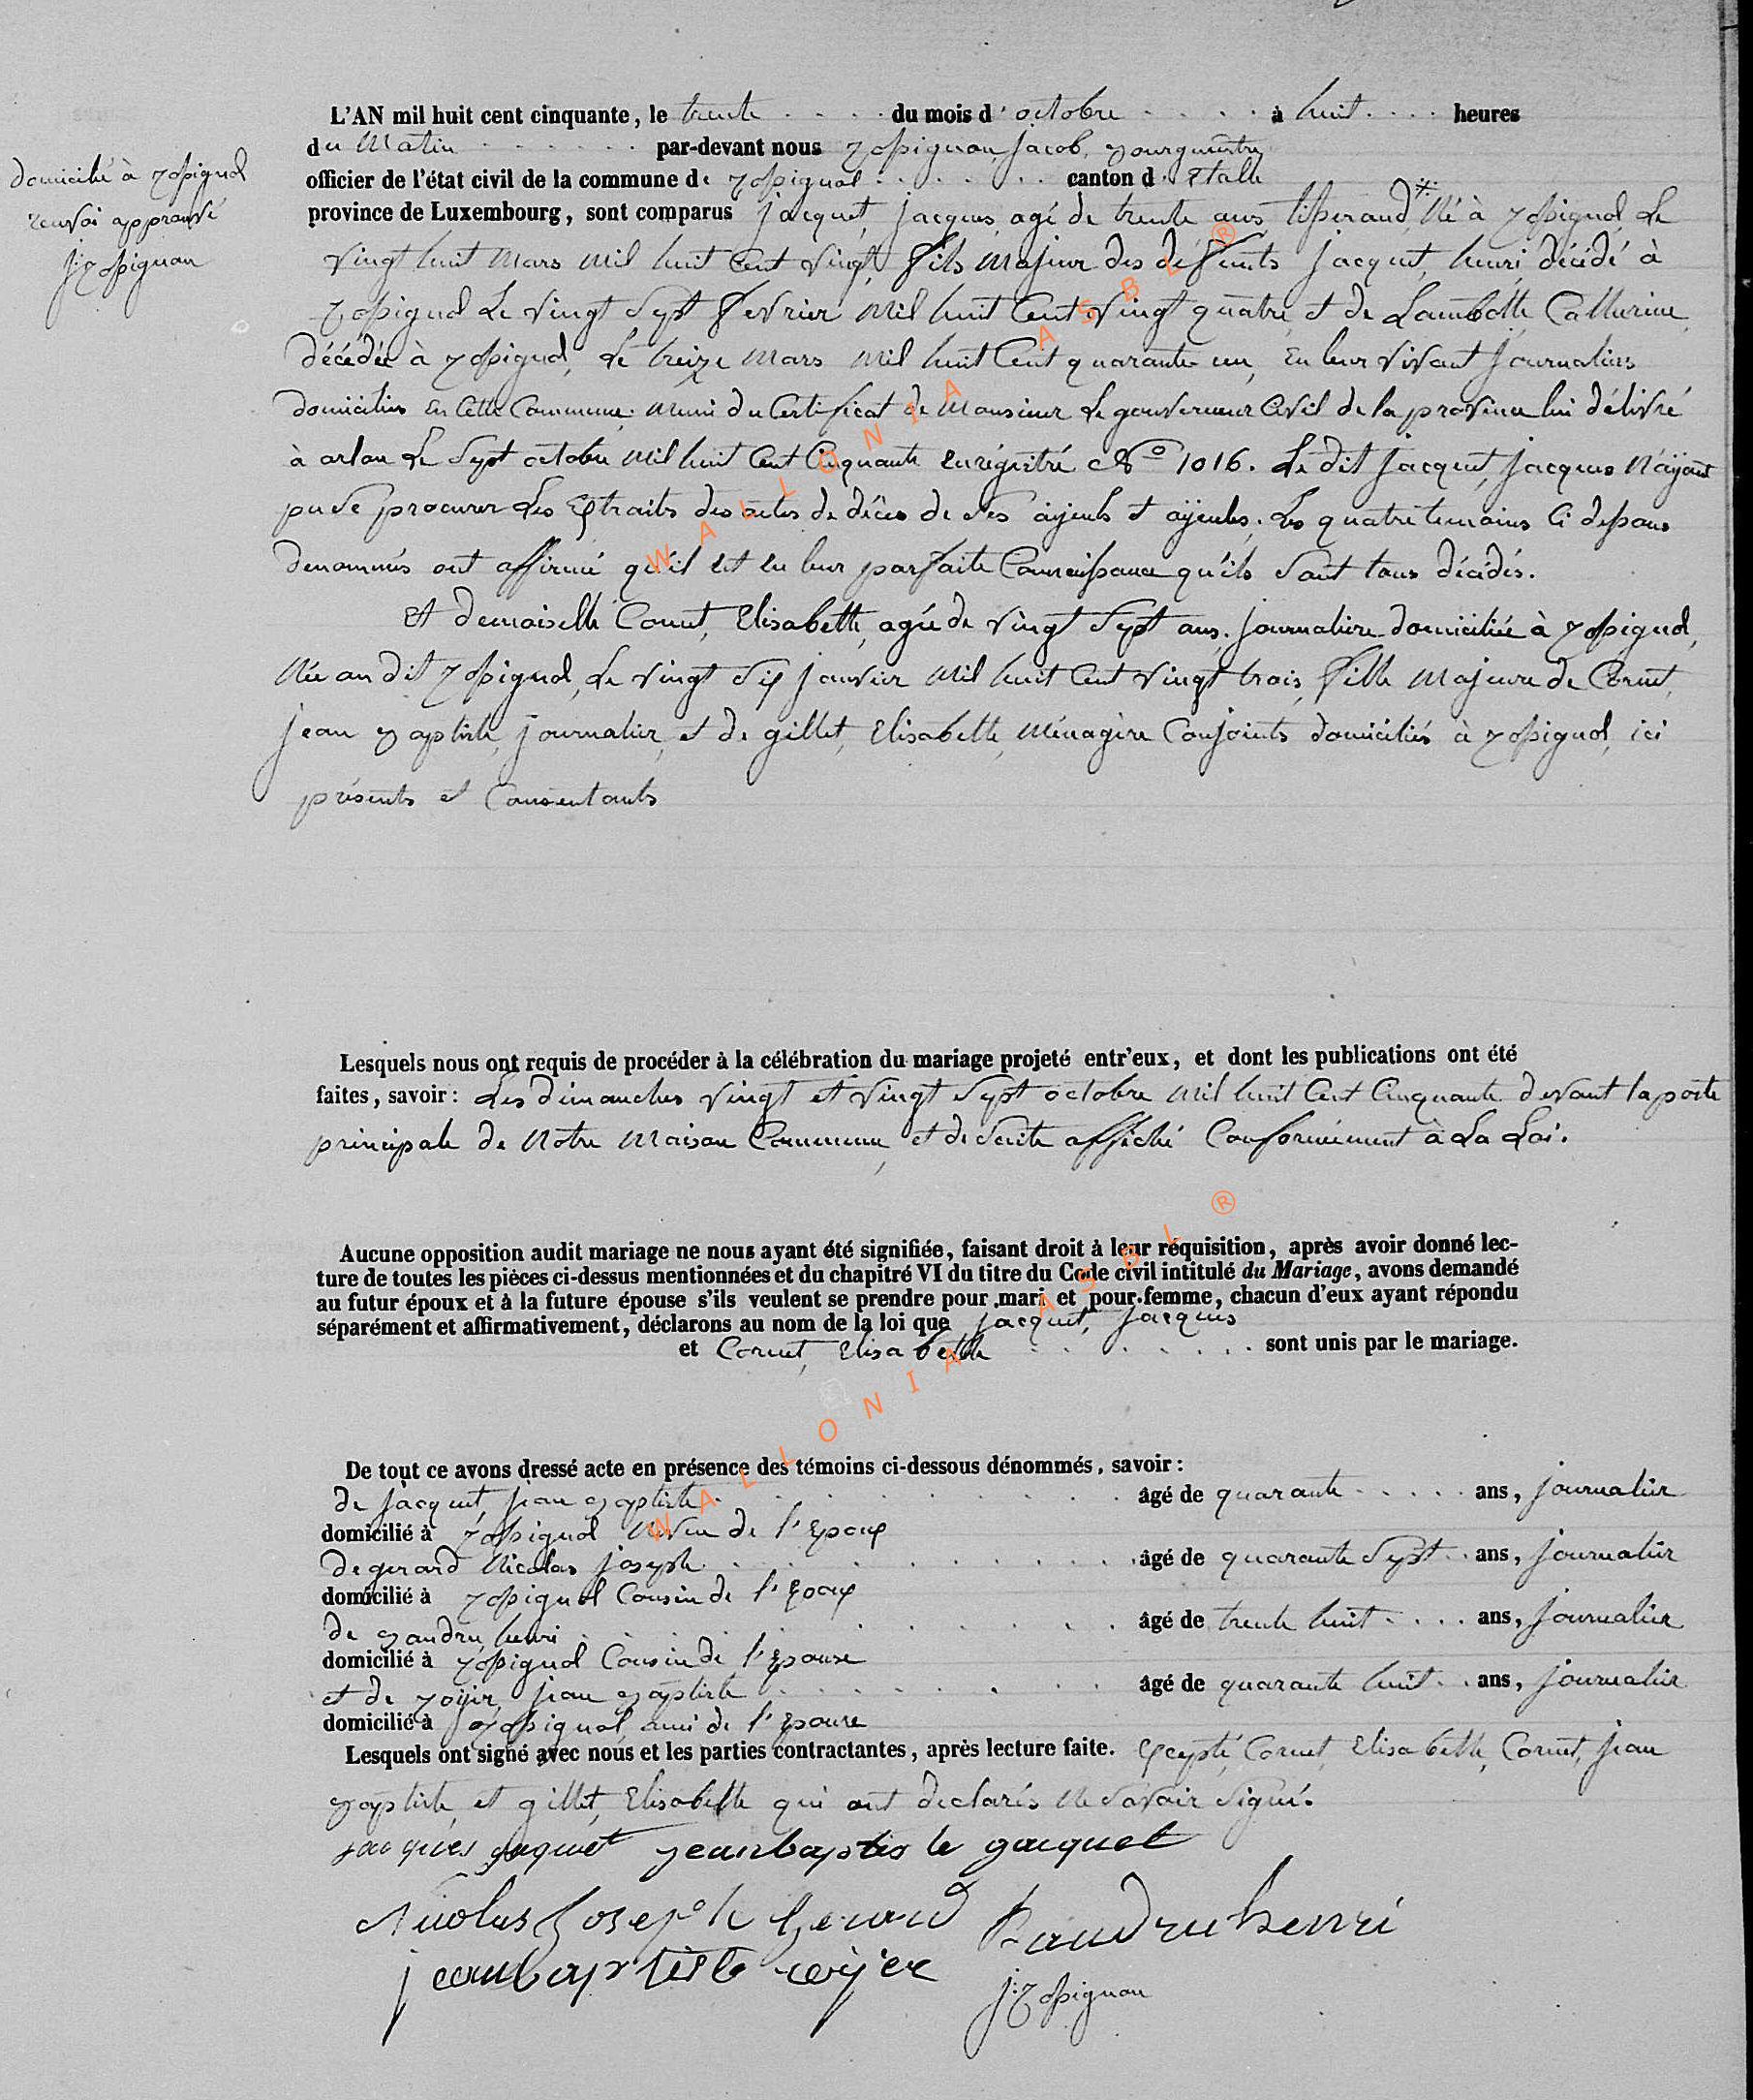 L'AN mil huit cent cinquante, le trente du mois d'octobre à huit heures
du Matin par-devant nous Rossignon, Jacob, Bourgmestre
officier de l'état civil de la commune de Rossignol canton d'Etalle
province de Luxembourg, sont comparus Jacquet, Jacques, agé de trente ans, tisserand,* Né à Rossignol, Le
domicilié à Rossignol
renvoi approuvé
J: Rossignon
vingt huit Mars Mil huit Cent vingt, fils Majeur des défunts Jacquet, henri décédé à
Rossignol Le vingt Sept fevrier Mil huit Cent vingt quatre, et de Lambotte Catherine,
décédée à Rossignol, Le treize Mars Mil huit Cent quarante un, En leur vivant Journaliers
domiciliés En Cette Commune. Muni du Certificat de Monsieur Le gouverneur Civil de la province lui délivré
à arlon Le Sept octobre Mil huit Cent Cinquante Enrégistré No 1016. Le dit Jacquet, Jacques N'ayant
pu Se procurer Les Extraits des actes de décès de Ses ayeuls et ayeules. Les quatre temoins Ci dessous
denommés ont affirmé qu'il est en leur parfaite Connaissance qu'ils Sont tous décédés.
Et demoiselle Cornet, Elisabeth, agée de vingt Sept ans, Journalière domiciliée à Rossignol,
Née au dit Rossignol, Le vingt Six Janvier Mil huit Cent vingt trois, fille Majeure de Cornet,
Jean Baptiste, Journalier, et de gillet, Elisabeth, Ménagère Conjoints domiciliés à Rossignol, ici
présents et Consentants
Lesquels nous ont requis de procéder à la célébration du mariage projeté entr'eux, et dont les publications ont été
faites, savoir: Les dimanches vingt et vingt Sept octobre Mil huit Cent Cinquante devant la porte
principale de Notre Maison Commune, et de Suite affiché Conformément à La Loi.
Aucune opposition audit mariage ne nous ayant été signifiée, faisant droit à leur réquisition, après avoir donné lec-
ture de toutes les pièces ci-dessus mentionnées et du chapitré VI du titre du Code civil intitulé du Mariage, avons demandé
au futur époux et à la future épouse s'ils veulent se prendre pour mari et pour femme, chacun d'eux ayant répondu
séparément et affirmativement, déclarons au nom de la loi que Jacquet, Jacques
et Cornet, Elisabeth sont unis par le mariage.
De tout ce avons dressé acte en présence des témoins ci-dessous dénommés, savoir:
de Jacquet, Jean Baptiste âgé de quarante ans, Journalier
domicilié à Rossignol Neveu de l'Epoux
de gerard Nicolas Joseph âgé de quarante Sept ans, Journalier
domicilié à Rossignol Cousin de l'Epoux
de Baudru, henri âgé de trente huit ans, Journalier
domicilié à Rossignol Cousin de l'Epouse
et de Royer, Jean Baptiste âgé de quarante huit ans, Journalier
domicilié à Rossignol ami de l'Epouse
Lesquels ont signé avec nous et les parties contractantes, après lecture faite. Excepté, Cornet, Elisabeth, Cornet, Jean
Baptiste, et gillet, Elisabeth qui ont declarés Ne Savoir Signé.
Jacques jaquet jeanbaptis te jacquet
Nicolas Joseph Gerard Baudru henri
jean baptiste roijer J: Rossignon
WALLONIA ASBL ®
WALLONIA ASBL ®